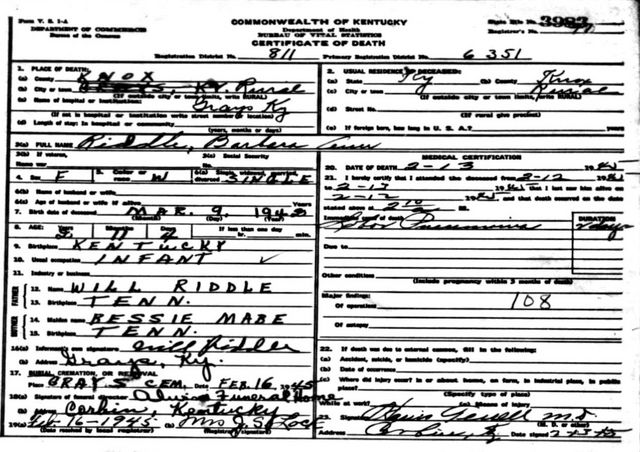 Form V. S. 1-A
DEPARTMENT OF COMMERCE
Bureau of the Census
COMMONWEALTH OF KENTUCKY
Department of Health
BUREAU OF VITAL STATISTICS
CERTIFICATE OF DEATH
State File No. 3983
Registrar's No.
Registration District No. 811 Primary Registration District No. 6351
1. PLACE OF DEATH:
(a) County KNOX
(b) City or town KY. Rural
(If outside city or town limits, write RURAL)
(c) Name of hospital or institution: Grays Ky
(If not in hospital or institution write street number or location)
(d) Length of stay: In hospital or community
(years, months or days)
2. USUAL RESIDENCE OF DECEASED:
(a) State Ky (b) County Knox
(c) City or town Rural
(If outside city or town limits, write RURAL)
(d) Street No.
(If rural give precinct)
(e) If foreign born, how long in U. S. A.? years
3(a) FULL NAME Riddle, Barbara Ann
3(b) If veteran, name war 3(c) Social Security No.
4. Sex F 5. Color or race W 6(a) Single, widowed, married, divorced SINGLE
6(b) Name of husband or wife
6(c) Age of husband or wife if alive years
7. Birth date of deceased MAR. 9, 1942
(Month) (Day) (Year)
8. AGE: Years 2 Months 11 Days If less than one day hr. min.
9. Birthplace KENTUCKY
10. Usual occupation INFANT
11. Industry or business
FATHER
12. Name WILL RIDDLE
13. Birthplace TENN.
MOTHER
14. Maiden name BESSIE MABE
15. Birthplace TENN.
16(a) Informant's own signature Will Riddle
(b) Address Grays, Ky.
17. BURIAL, CREMATION, OR REMOVAL
Place GRAYS CEM. Date FEB. 16, 1945
18(a) Signature of funeral director Funeral Home
(b) address Corbin, Kentucky
19(a) Feb-16-1945 Mrs J. S. Lock
(Date received by local registrar) (Registrar's signature)
MEDICAL CERTIFICATION
20. DATE OF DEATH 2-13 19
21. I hereby certify that I attended the deceased from 2-12 19
to 2-13 19 that I last saw him alive on
2-12 19 and that death occurred on the date
stated above at
Immediate cause of death Pneumonia
DURATION
days
Due to
Other conditions
(Include pregnancy within 3 months of death)
Major findings:
Of operations 108
Of autopsy
22. If death was due to external causes, fill in the following:
(a) Accident, suicide, or homicide (specify)
(b) Date of occurrence
(c) Where did injury occur? In or about home, on farm, in industrial place, in public place?
(Specify type of place)
While at work? (e) Means of injury
23. Signature M.D.
(M. D. or other)
Address Corbin, Ky Date signed